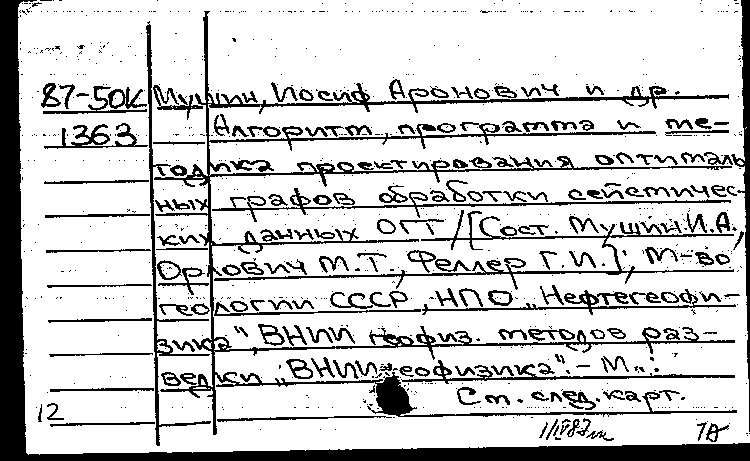 87-50К Мушин, Иосиф Аронович и др.
1363 Алгоритм, программа и ме-
тодика проектирования оптималь
ных графов обработки сейсмичес-
ких данных ОГТ/[Сост. Мушин И.А.,
Орлович М.Т., Феллер Г.И.]; М-во
геологии СССР, НПО „Нефтегеофи-
зика", ВНИИ геофиз. методов раз-
ведки „ВНИИгеофизика".- М.:
См. след. карт.
12